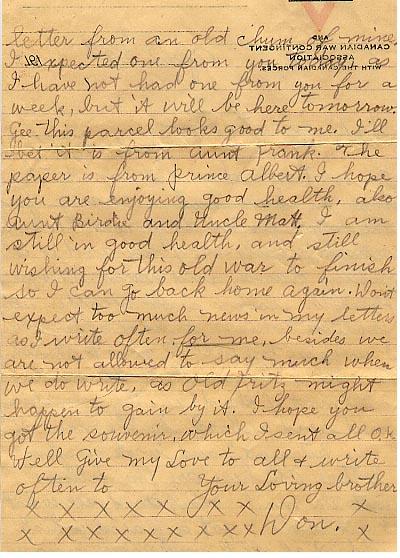 letter from an old chum of mine.
I expected one from you as
I have not had one from you for a
week, but it will be here tomorrow.
Gee this parcel looks good to me. I'll
bet it is from aunt Frank. The
paper is from Prince Albert. I hope
you are enjoying good health, also
aunt Birdie and Uncle Matt. I am
still in good health, and still
wishing for this old war to finish
so I can go back home again. Dont
expect too much news in my letters
as I write often for me, besides we
are not allowed to say much when
we do write, as Old Fritz might
happen to gain by it. I hope you
got the souvenir, which I sent all O.K.
Well Give my Love to all & write
often to Your Loving brother
x x x x x x x x x
x x x x x x x x Don. x
AND
CANADIAN WAR CONTINGENT
ASSOCIATION
WITH THE CANADIAN FORCES.
191